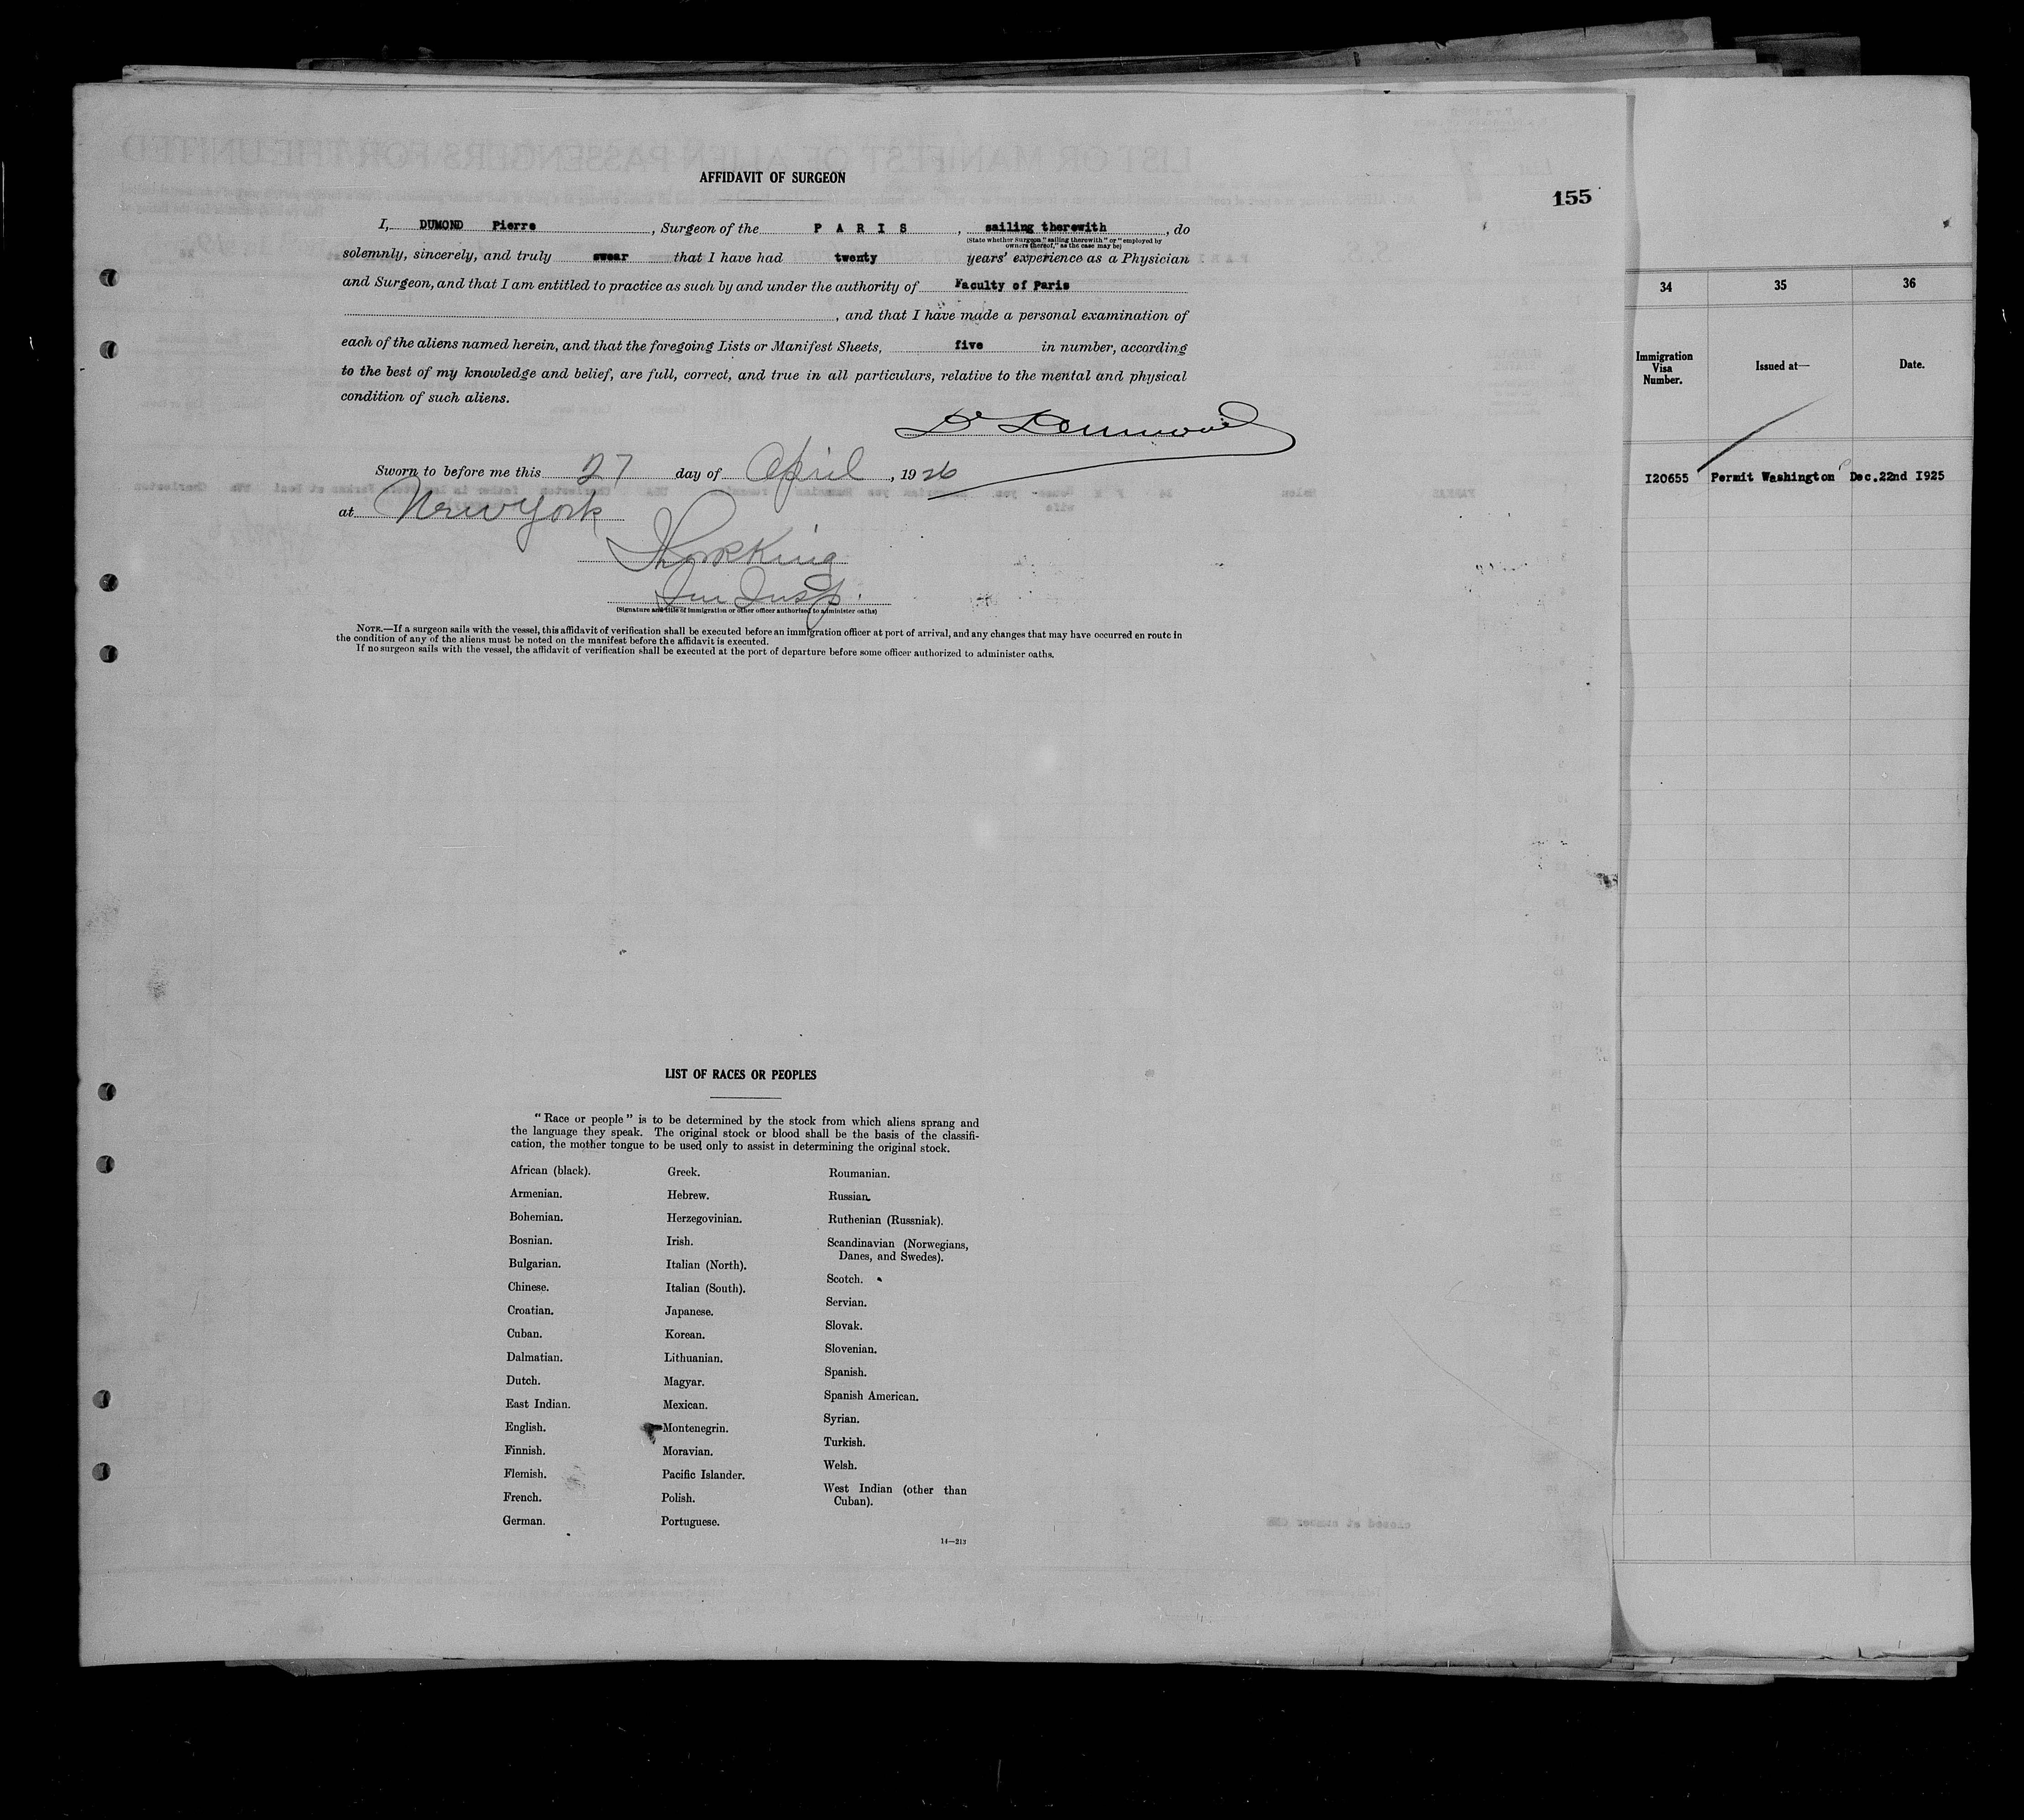 AFFIDAVIT OF SURGEON
155
I, DUMOND Pierre, Surgeon of the P A R I S, sailing therewith, do
(State whether Surgeon "sailing therewith" or "employed by
owners thereof," as the case may be)
solemnly, sincerely, and truly swear that I have had twenty years' experience as a Physician
and Surgeon, and that I am entitled to practice as such by and under the authority of Faculty of Paris
, and that I have made a personal examination of
each of the aliens named herein, and that the foregoing Lists or Manifest Sheets, five in number, according
to the best of my knowledge and belief, are full, correct, and true in all particulars, relative to the mental and physical
condition of such aliens.
Sworn to before me this 27 day of April, 1926
at New York
King
Im Insp.
(Signature and title of immigration or other officer authorized to administer oaths)
NOTE.—If a surgeon sails with the vessel, this affidavit of verification shall be executed before an immigration officer at port of arrival, and any changes that may have occurred en route in
the condition of any of the aliens must be noted on the manifest before the affidavit is executed.
If no surgeon sails with the vessel, the affidavit of verification shall be executed at the port of departure before some officer authorized to administer oaths.
LIST OF RACES OR PEOPLES
"Race or people" is to be determined by the stock from which aliens sprang and
the language they speak. The original stock or blood shall be the basis of the classifi-
cation, the mother tongue to be used only to assist in determining the original stock.
African (black).
Armenian.
Bohemian.
Bosnian.
Bulgarian.
Chinese.
Croatian.
Cuban.
Dalmatian.
Dutch.
East Indian.
English.
Finnish.
Flemish.
French.
German.
Greek.
Hebrew.
Herzegovinian.
Irish.
Italian (North).
Italian (South).
Japanese.
Korean.
Lithuanian.
Magyar.
Mexican.
Montenegrin.
Moravian.
Pacific Islander.
Polish.
Portuguese.
Roumanian.
Russian.
Ruthenian (Russniak).
Scandinavian (Norwegians,
Danes, and Swedes).
Scotch.
Servian.
Slovak.
Slovenian.
Spanish.
Spanish American.
Syrian.
Turkish.
Welsh.
West Indian (other than
Cuban).
14—213
34 35 36
Immigration
Visa
Number.
Issued at—
Date.
I20655 Permit Washington Dec.22nd I925